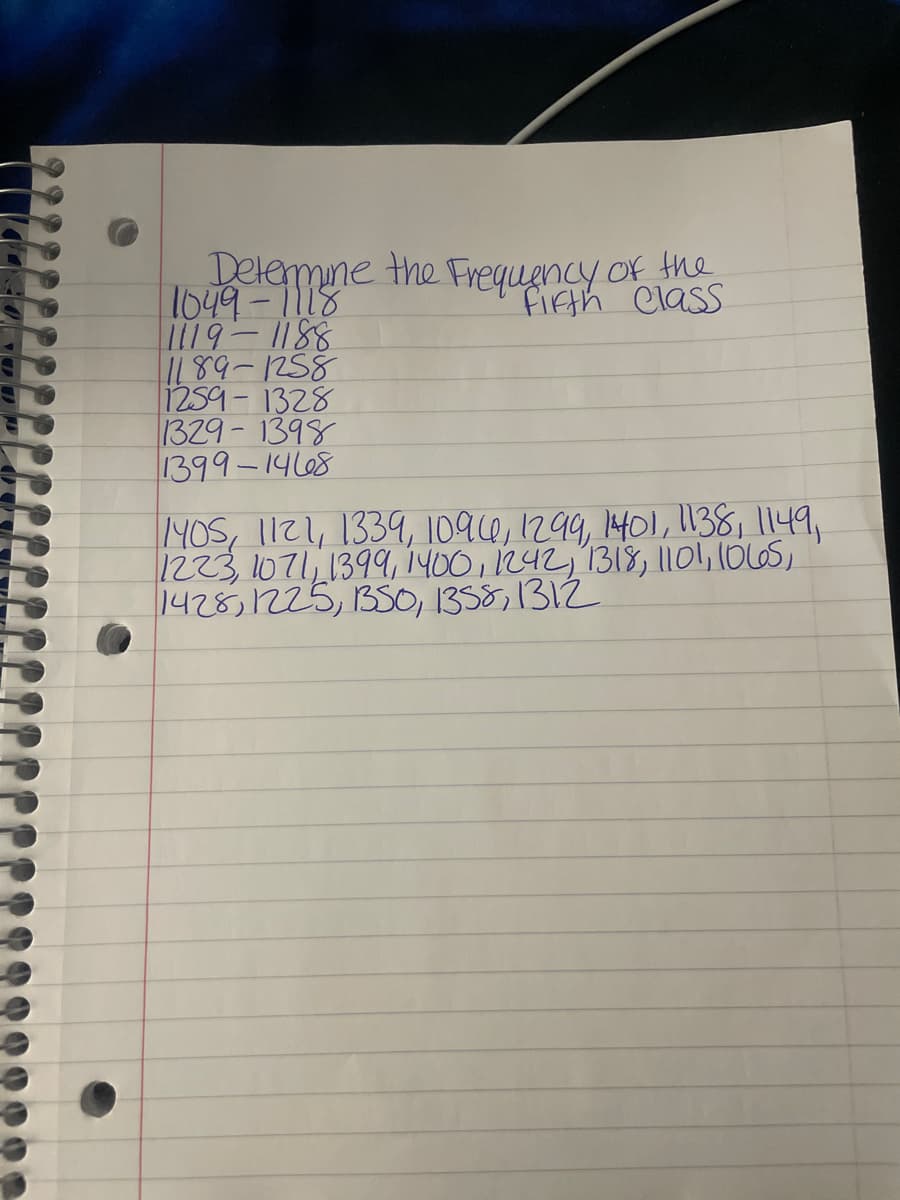 Determine the Frequency of the
fifth class
1049-1118
1119-1188
1189-1258
1259-1328
1329-1398
1399-1468
1405, 1121, 1339, 1096, 1299, 1401, 1138, 1149,
1223, 1071, 1399, 1400, 1242, 1318, 1101, 1065,
1428, 1225, 1350, 1358, 1312